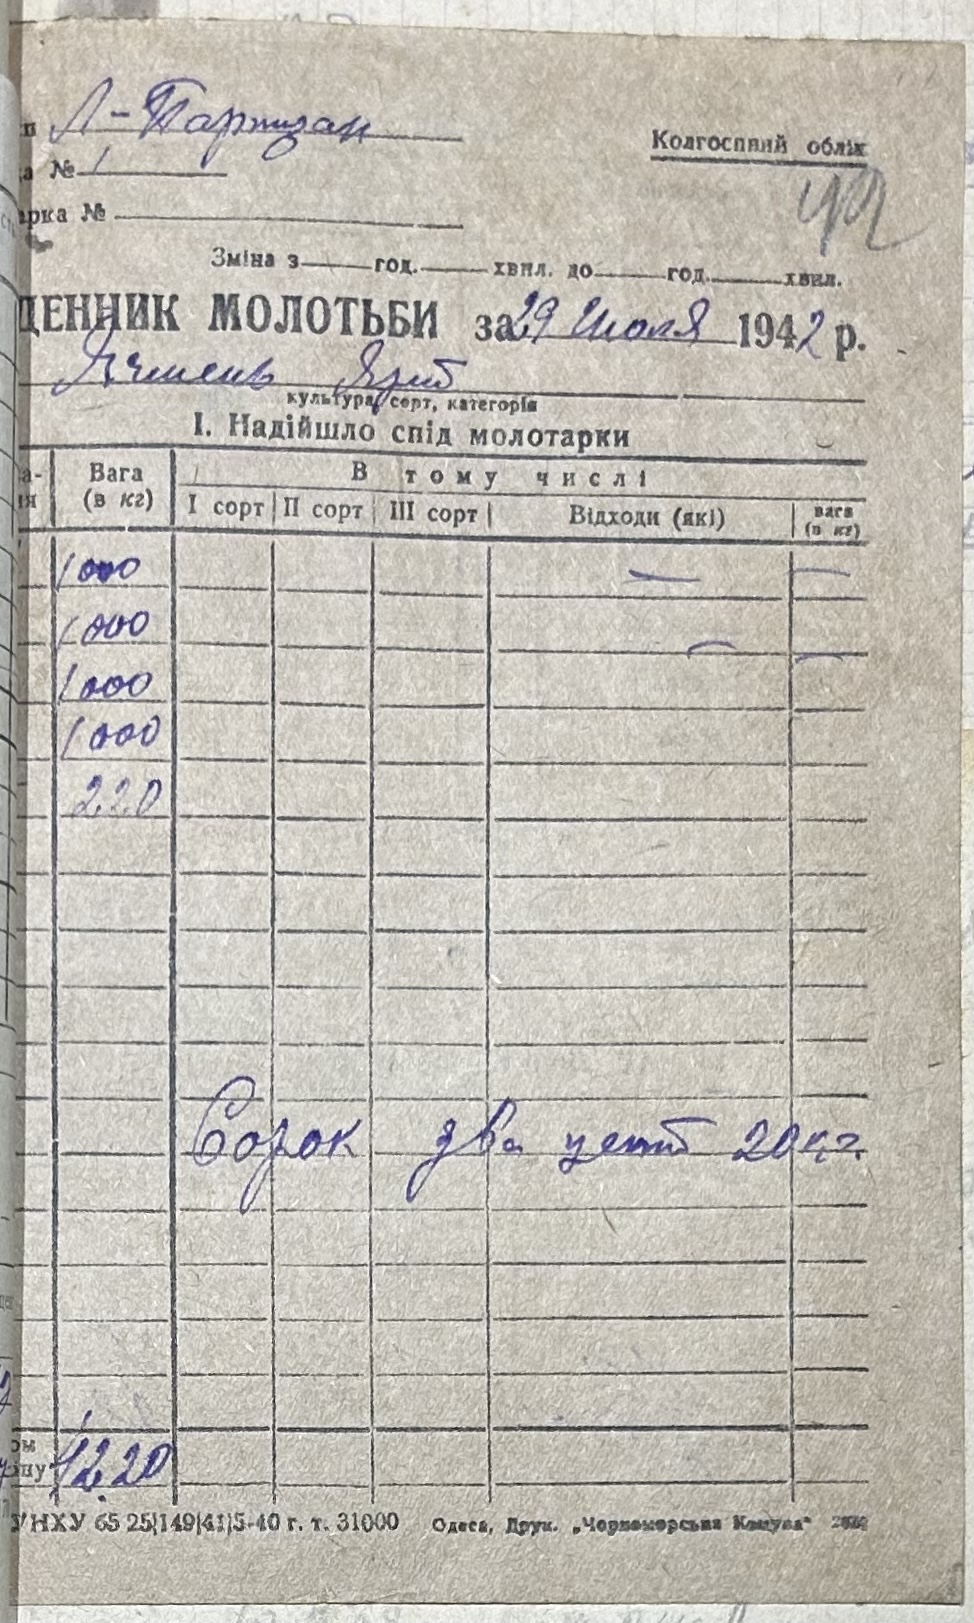 п Л-Партизан
Колгоспний облік
а № 1
арка №
Зміна з год. хвил. до год. хвил.
ЩЕННИК МОЛОТЬБИ за 29 Июля 1942 р.
Ячмень Яриб
культура, сорт, категорія
I. Надійшло спід молотарки
Вага (в кг) В тому числі
I сорт II сорт III сорт Відходи (які) вага (в кг)
1000 — —
1000 — —
1000
1000
220
Сорок два цент 20 кг.
ом
ну 4220
УНХУ 65 25|149|41|5-40 г. т. 31000 Одеса, Друк. „Чорноморська Комуна"